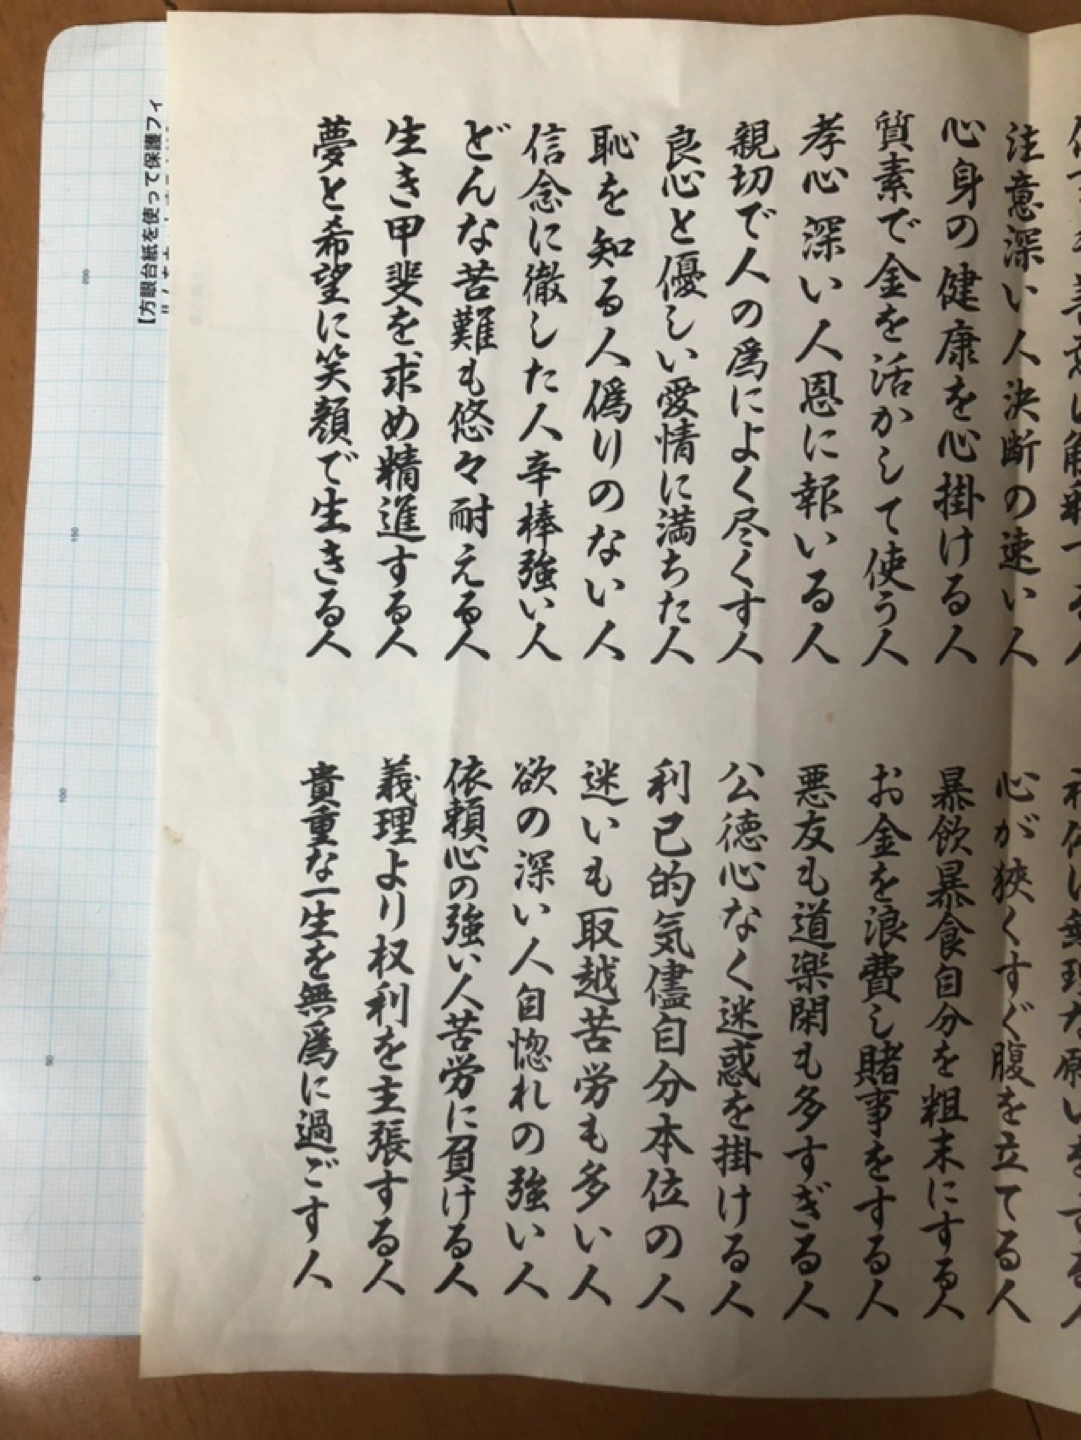 注意深い人決断の速い人
心身の健康を心掛ける人
質素で金を活かして使う人
孝心深い人恩に報いる人
親切で人の為によく尽くす人
良心と優しい愛情に満ちた人
恥を知る人偽りのない人
信念に徹した人辛棒強い人
どんな苦難も悠々耐える人
生き甲斐を求め精進する人
夢と希望に笑顔で生きる人
心が狭くすぐ腹を立てる人
暴飲暴食自分を粗末にする人
お金を浪費し賭事をする人
悪友も道楽閑も多すぎる人
公徳心なく迷惑を掛ける人
利己的気儘自分本位の人
迷いも取越苦労も多い人
欲の深い人自惚れの強い人
依頼心の強い人苦労に負ける人
義理より权利を主張する人
貴重な一生を無為に過ごす人
【方眼台紙を使って保護フィ
200
150
100
50
0